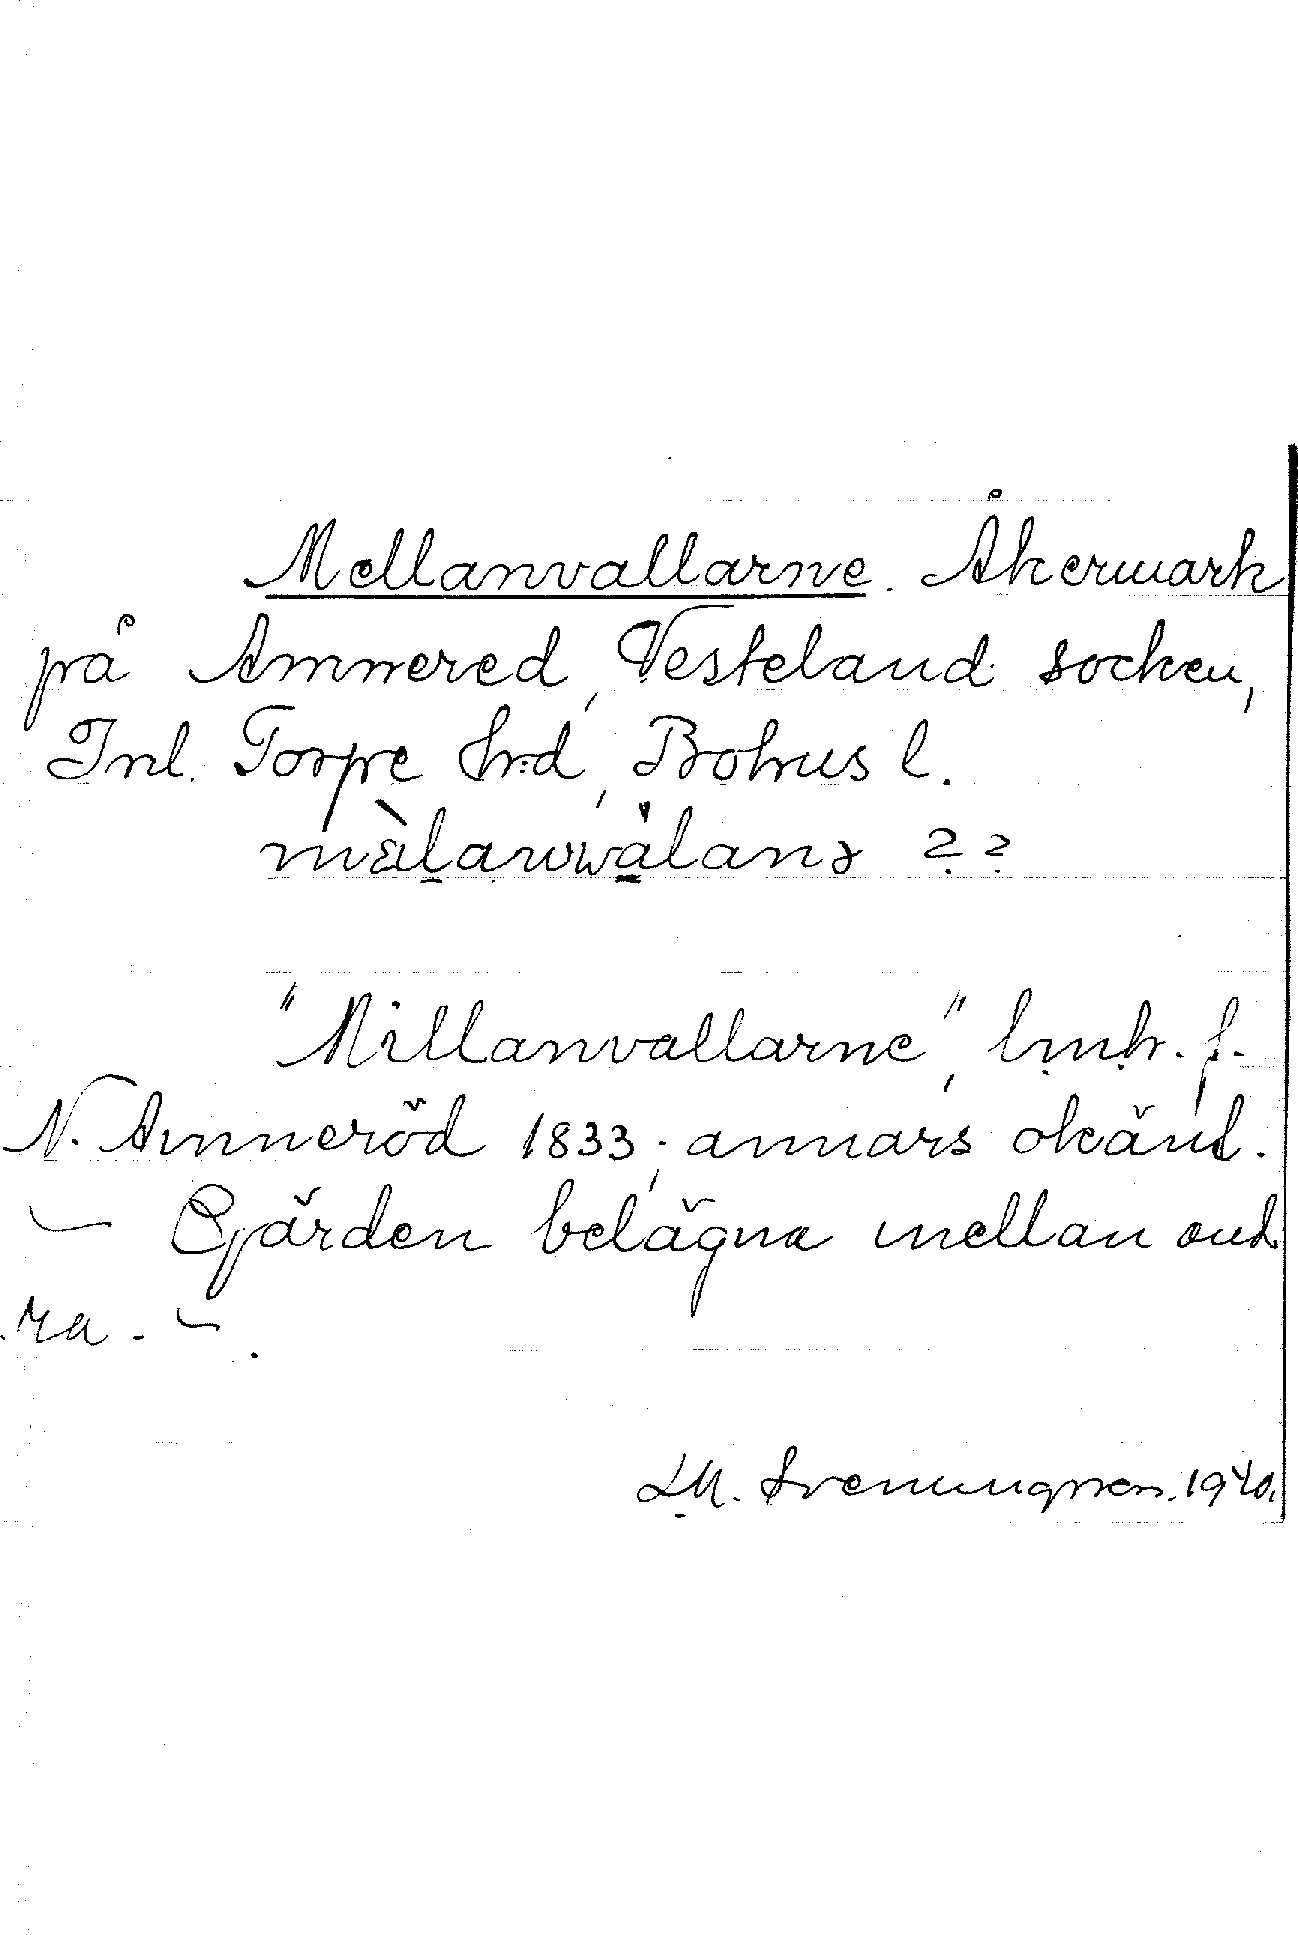 Mellanvallarne. Åkermark
på Amnered, Vesteland socken,
Inl. Torpe hrd, Bohus l.
"Millanvallarne", lmh. f.
N. Amneröd 1833; annars okänd.
– Gjärden belägna mellan and
ra. –
Lll. Svenungsson. 1940.